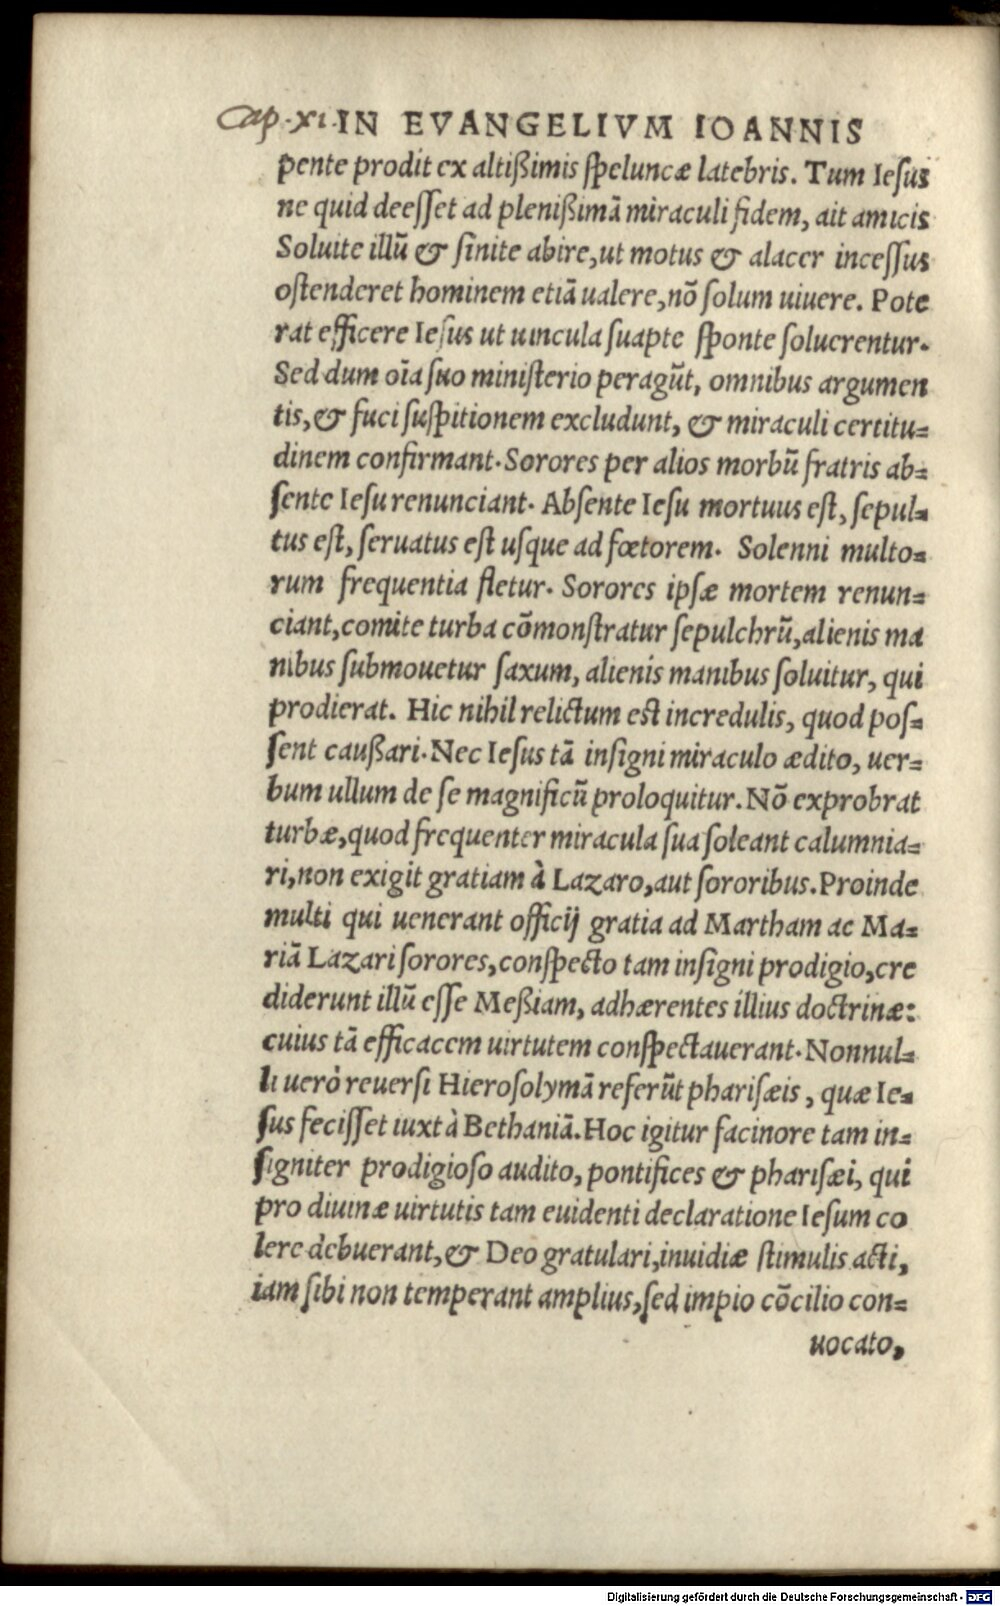 Cap. xi. IN EVANGELIVM IOANNIS
pente prodit ex altißimis ſpeluncæ latebris. Tum Ieſus
ne quid deeſſet ad plenißimā miraculi fidem, ait amicis
Soluite illū & ſinite abire, ut motus & alacer inceſſus
oſtenderet hominem etiā ualere, nō ſolum uiuere. Pote
rat efficere Ieſus ut uincula ſuapte ſponte ſoluerentur.
Sed dum oīa ſuo miniſterio peragūt, omnibus argumen
tis, & fuci ſuſpitionem excludunt, & miraculi certitu⸗
dinem confirmant. Sorores per alios morbū fratris ab⸗
ſente Ieſu renunciant. Abſente Ieſu mortuus eſt, ſepul⸗
tus eſt, ſeruatus eſt uſque ad fœtorem. Solenni multo⸗
rum frequentia fletur. Sorores ipſæ mortem renun⸗
ciant, comite turba cōmonſtratur ſepulchrū, alienis ma
nibus ſubmouetur ſaxum, alienis manibus ſoluitur, qui
prodierat. Hic nihil relictum est incredulis, quod poſ⸗
ſent cauſſari. Nec Ieſus tā inſigni miraculo ædito, uer⸗
bum ullum de ſe magnificū proloquitur. Nō exprobrat
turbæ, quod frequenter miracula ſua ſoleant calumnia⸗
ri, non exigit gratiam à Lazaro, aut ſororibus. Proinde
multi qui uenerant officij gratia ad Martham ac Ma⸗
riā Lazari ſorores, conſpecto tam inſigni prodigio, cre
diderunt illū eſſe Meßiam, adhærentes illius doctrinæ:
cuius tā efficacem uirtutem conſpectauerant. Nonnul⸗
li uerò reuerſi Hieroſolymā referūt phariſæis, quæ Ie⸗
ſus feciſſet iuxtà Bethaniā. Hoc igitur facinore tam in⸗
ſigniter prodigioſo audito, pontifices & phariſæi, qui
pro diuinæ uirtutis tam euidenti declaratione Ieſum co
lere debuerant, & Deo gratulari, inuidiæ ſtimulis acti,
iam ſibi non temperant amplius, ſed impio cōcilio con⸗
uocato,
Digitalisierung gefördert durch die Deutsche Forschungsgemeinschaft - DFG